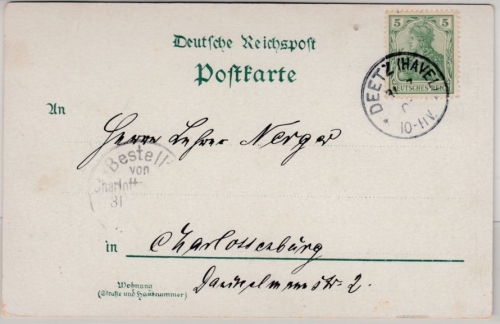 Deutsche Reichspost
Postkarte
5 5
DEUTSCHES REICH
DEETZ (HAVEL)
10-11V.
An
Herrn Lehrer Nerger
Bestellt
von
Charlott
31
in Charlottenburg
Danckelmannstr. 2.
Wohnung
(Straße und Hausnummer)